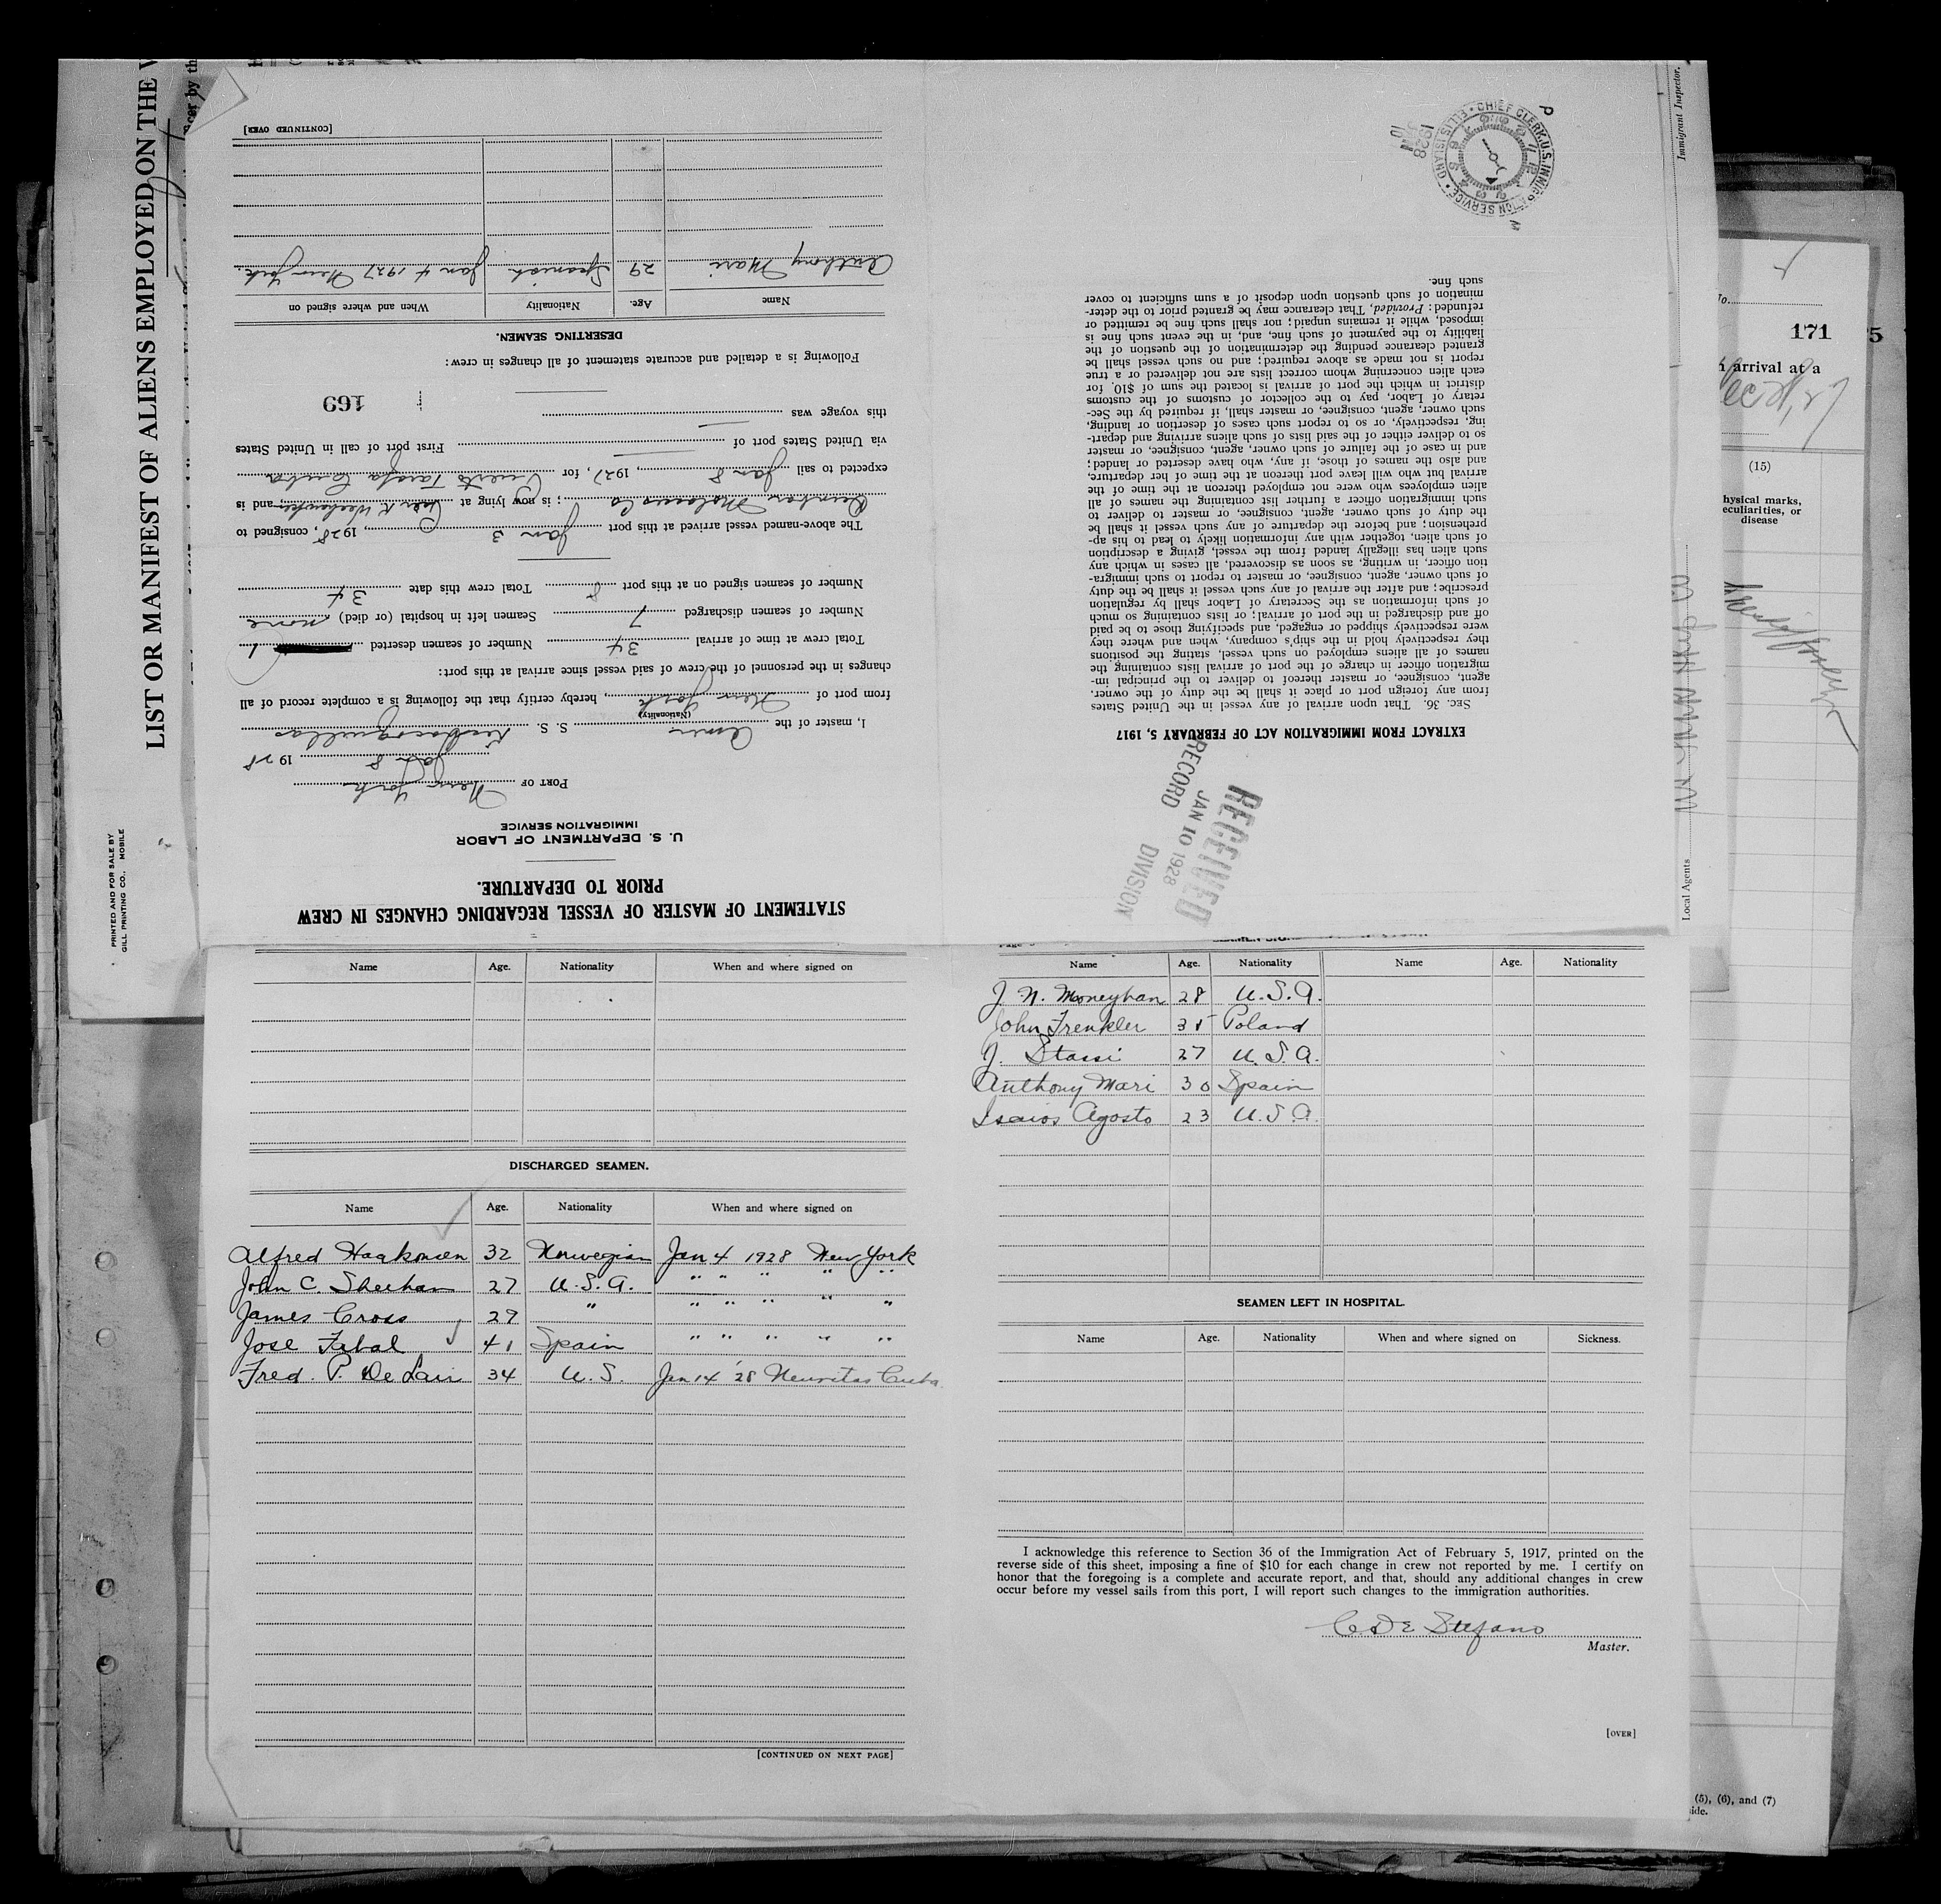 LIST OR MANIFEST OF ALIENS EMPLOYED ON THE V
PRINTED AND FOR SALE BY
GILL PRINTING CO., MOBILE
STATEMENT OF MASTER OF VESSEL REGARDING CHANGES IN CREW
PRIOR TO DEPARTURE.
U. S. DEPARTMENT OF LABOR
IMMIGRATION SERVICE
PORT OF New York
Jan 8 1928
I, master of the Amer (Nationality) S. S.
from port of New York, hereby certify that the following is a complete record of all
changes in the personnel of the crew of said vessel since arrival at this port:
Total crew at time of arrival 34 Number of seamen deserted 1
Number of seamen discharged 7 Seamen left in hospital (or died) none
Number of seamen signed on at this port 8 Total crew this date 34
The above-named vessel arrived at this port Jan 3, 1928, consigned to
Dunbar Molasses Co; is now lying at and is
expected to sail Jan 8, 1927, for Puerto Tarafa Cuba
via United States port of First port of call in United States
this voyage was
169
Following is a detailed and accurate statement of all changes in crew:
DESERTING SEAMEN.
Name Age. Nationality When and where signed on
Anthony Mari 29 Spanish Jan 4 1927 New York.
[CONTINUED OVER]
CHIEF CLERK, U.S. IMMIGRATION SERVICE • ELLIS ISLAND •
1928
JAN
10
RECEIVED
JAN 10 1928
RECORD DIVISION
EXTRACT FROM IMMIGRATION ACT OF FEBRUARY 5, 1917
SEC. 36. That upon arrival of any vessel in the United States
from any foreign port or place it shall be the duty of the owner,
agent, consignee, or master thereof to deliver to the principal im-
migration officer in charge of the port of arrival lists containing the
names of all aliens employed on such vessel, stating the positions
they respectively hold in the ship's company, when and where they
were respectively shipped or engaged, and specifying those to be paid
off and discharged in the port of arrival; or lists containing so much
of such information as the Secretary of Labor shall by regulation
prescribe; and after the arrival of any such vessel it shall be the duty
of such owner, agent, consignee, or master to report to such immigra-
tion officer, in writing, as soon as discovered, all cases in which any
such alien has illegally landed from the vessel, giving a description
of such alien, together with any information likely to lead to his ap-
prehension; and before the departure of any such vessel it shall be
the duty of such owner, agent, consignee, or master to deliver to
such immigration officer a further list containing the names of all
alien employees who were not employed thereon at the time of the
arrival but who will leave port thereon at the time of her departure,
and also the names of those, if any, who have deserted or landed;
and in case of the failure of such owner, agent, consignee, or master
so to deliver either of the said lists of such aliens arriving and depart-
ing, respectively, or so to report such cases of desertion or landing,
such owner, agent, consignee, or master shall, if required by the Sec-
retary of Labor, pay to the collector of customs of the customs
district in which the port of arrival is located the sum of $10. for
each alien concerning whom correct lists are not delivered or a true
report is not made as above required; and no such vessel shall be
granted clearance pending the determination of the question of the
liability to the payment of such fine, and, in the event such fine is
imposed, while it remains unpaid; nor shall such fine be remitted or
refunded: Provided, That clearance may be granted prior to the deter-
mination of such question upon deposit of a sum sufficient to cover
such fine.
Immigrant Inspector.
Local Agents
No.
171
5
arrival at a
(15)
hysical marks,
eculiarities, or
disease
Name Age. Nationality When and where signed on
DISCHARGED SEAMEN.
Name Age. Nationality When and where signed on
Alfred Haakonsen 32 Norwegian Jan 4 1928 New York
John C. Sheehan 27 U.S.A. " " " " "
James Cross 29 " " " " " "
Jose Fabal 41 Spain " " " " "
Fred. P. De Lair 34 U.S. Jan 14 '28 Neuvitas Cuba
[CONTINUED ON NEXT PAGE]
Name Age. Nationality Name Age. Nationality
J. N. Moneyhan 28 U.S.A.
John Frenkler 35 Poland
J. Stassi 27 U.S.A.
Anthony Mari 30 Spain
Isaios Agosto 23 U.S.A.
SEAMEN LEFT IN HOSPITAL.
Name Age. Nationality When and where signed on Sickness.
I acknowledge this reference to Section 36 of the Immigration Act of February 5, 1917, printed on the
reverse side of this sheet, imposing a fine of $10 for each change in crew not reported by me. I certify on
honor that the foregoing is a complete and accurate report, and that, should any additional changes in crew
occur before my vessel sails from this port, I will report such changes to the immigration authorities.
C De Stefano
Master.
[OVER]
(5), (6), and (7)
ide.